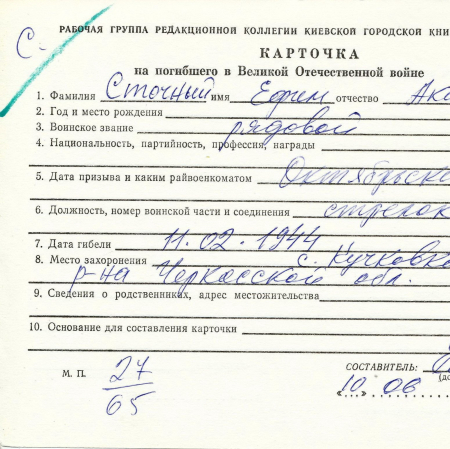 С-
РАБОЧАЯ ГРУППА РЕДАКЦИОННОЙ КОЛЛЕГИИ КИЕВСКОЙ ГОРОДСКОЙ КНИ
КАРТОЧКА
на погибшего в Великой Отечественной войне
1. Фамилия Сточный имя Ефим отчество Ак
2. Год и место рождения
3. Воинское звание рядовой
4. Национальность, партийность, профессия, награды
5. Дата призыва и каким райвоенкоматом Октябрьско
6. Должность, номер воинской части и соединения стрелок
7. Дата гибели 11.02.1944
8. Место захоронения с. Кучковка
р-на Черкасской обл.
9. Сведения о родственниках, адрес местожительства
10. Основание для составления карточки
М. П. 27/65
СОСТАВИТЕЛЬ:
(до
"10" 06